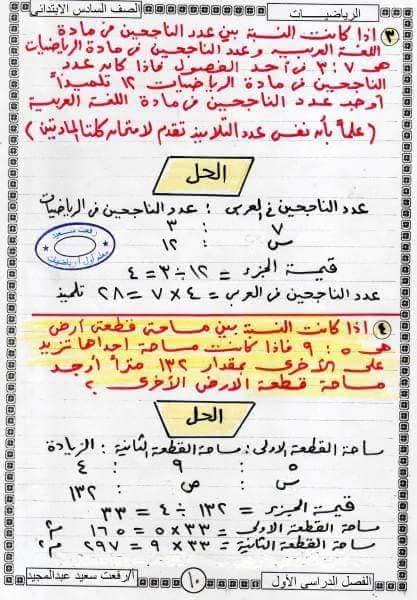 الرياضيات
الصف السادس الابتدائى
٣ اذا كانت النسبة بين عدد الناجحين فى مادة
اللغة العربية وعدد الناجحين فى مادة الرياضيات
هى ٧ : ٣ فى أحد الفصول فاذا كان عدد
الناجحين فى مادة الرياضيات ١٢ تلميذاً
أوجد عدد الناجحين فى مادة اللغة العربية
( علماً بأنه نفس عدد التلاميذ تقدم لامتحان كلتا المادتين )
الحل
عدد الناجحين فى العربى : عدد الناجحين فى الرياضيات
٧ : ٣
س : ١٢
قيمة الجزء = ١٢ ÷ ٣ = ٤
عدد الناجحين فى العربى = ٤ × ٧ = ٢٨ تلميذ
رفعت سعيد
معلم أول أ رياضيات
٤ اذا كانت النسبة بين مساحتى قطعتى أرض
هى ٥ : ٩ فاذا كانت مساحة احداها تزيد
على الأخرى بمقدار ١٣٢ متراً أوجد
مساحة قطعة الارض الأخرى ؟
الحل
مساحة القطعة الاولى : مساحة القطعة الثانية : الزيادة
٥ : ٩ : ٤
س : ص : ١٣٢
قيمة الجزء = ١٣٢ ÷ ٤ = ٣٣
مساحة القطعة الاولى = ٣٣ × ٥ = ١٦٥ م٢
مساحة القطعة الثانية = ٣٣ × ٩ = ٢٩٧ م٢
الفصل الدراسي الأول
١٠
أ/رفعت سعيد عبدالمجيد